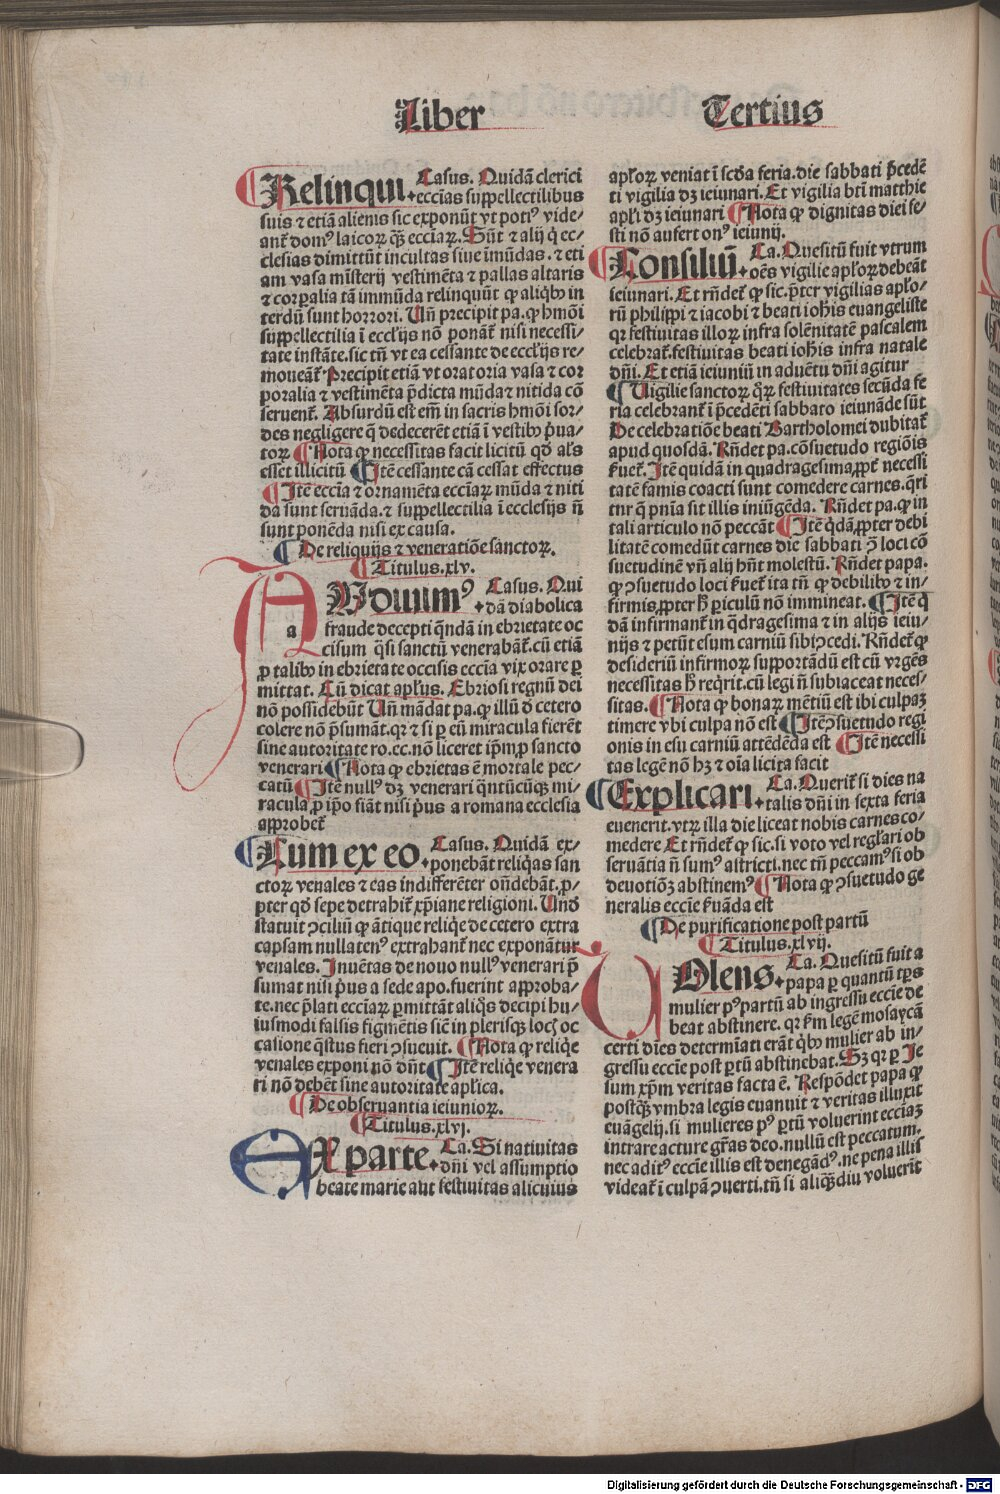 Liber
Tertius
Relinqui. Casus. Quidã clerici
ecctias suppellectilibus
suis ⁊ etiã alienis sic exponũt vt potiꝰ vide-
ant̃ domꝰ laicoꝝ q̃ꝫ ecciaꝝ. Sũt ⁊ alij q̃ ec-
clesias dimittũt incultas siue imũdas. ⁊ eti
am vasa mĩsterij vestimẽta ⁊ pallas altaris
⁊ corꝑalia tã immũda relinquũt ꝙ aliqĩbꝰ in
terdũ sunt horrori. Uñ precipit pa. ꝙ hmõi
suppellectilia ĩ ecclĩjs nõ ponãt̃ nisi necessi-
tate instãte. sic tñ vt ea cessante de ecclĩjs re-
moueãt̃ Precipit etiã vt oratoria vasa ⁊ cor
poralia ⁊ vestimẽta p̃dicta mũda ⁊ nitida cõ
seruent̃. Absurdũ est em̃ in sacris hmõi sor-
des negligere q̃ dedecerẽt etiã ĩ vestibꝰ p̃ua-
toꝝ ¶Nota ꝙ necessitas facit licitũ qd̃ al's
esset illicitũ ¶Itẽ cessante cã cessat effectus
¶Itẽ eccia ⁊ ornamẽta ecciaꝝ mũda ⁊ niti
da sunt seruãda. ⁊ suppellectilia ĩ ecclesijs ñ
sunt ponẽda nisi ex causa.
¶De reliquijs ⁊ veneratiõe sanctoꝝ.
¶Titulus. xlv.
AUdiuimꝰ. Casus. Qui
dã diabolica
a fraude decepti q̃ndã in ebrietate oc
cisum q̃si sanctũ venerabãt̃. cũ etiã
ꝓ talibꝰ in ebrietate occisis eccia vix orare ꝑ
mittat. Cũ dicat apl̃us. Ebriosi regnũ dei
nõ possidebũt Uñ mãdat pa. ꝙ illũ d̃ cetero
colere nõ p̃sumãt. qꝛ ⁊ si ꝑ eũ miracula fierẽt
sine autoritate ro. ec. nõ liceret ip̃m ꝓ sancto
venerari ¶Nota ꝙ ebrietas ẽ mortale pec-
catũ ¶Itẽ nullꝰ dꝫ venerari q̃ntũcũqꝫ mi-
racula ꝑ ip̃o fiãt nisi p̃us a romana ecclesia
approbet̃
¶Cum ex eo. Casus. Quidã ex-
ponebãt reliq̃as san
ctoꝝ venales ⁊ eas indifferẽter oñdebãt. ꝓ-
pter qd̃ sepe detrahit̃ xp̃iane religioni. Uñd̃
statuit ↄ̃ciliũ ꝙ ãtique reliq̃e de cetero extra
capsam nullatenꝰ extrahant̃ nec exponãtur
venales. Inuẽtas de nouo nullꝰ venerari p̃
sumat nisi p̃us a sede apo. fuerint approba-
te. nec p̃lati ecciaꝝ ꝑmittãt aliq̃s decipi hu-
iusmodi falsis figmẽtis sic̃ in plerisqꝫ locꝭ oc
casione q̃stus fieri ↄsueuit. ¶Nota ꝙ reliq̃e
venales exponi nõ dñt ¶Itẽ reliq̃e venera
ri nõ debẽt sine autoritate aplica.
¶De obseruantia ieiunioꝝ.
¶Titulus. xlvj.
EX parte. Ca. Si natiuitas
dñi vel assumptio
beate marie aut festiuitas alicuius
apl̃oꝝ veniat ĩ scd̃a feria. die sabbati p̃cedẽ
ti vigilia dꝫ ieiunari. Et vigilia bti matthie
apl̃i dꝫ ieiunari ¶Nota ꝙ dignitas diei fe-
sti nõ aufert onꝰ ieiunij.
¶Consiliũ. Ca. Quesitũ fuit vtrum
oẽs vigilie apl̃oꝝ debeãt
ieiunari. Et rñdet̃ ꝙ sic. p̃ter vigilias apl̃o-
rũ philippi ⁊ iacobi ⁊ beati ioh̃is euangeliste
qꝛ festiuitas illoꝝ infra solẽnitatẽ pascalem
celebrat̃. festiuitas beati ioh̃is infra natale
dñi. Et etiã ieiuniũ in aduẽtu dñi agitur
¶Uigilie sanctoꝝ q̃ꝝ festiuitates secũda fe
ria celebrant̃ ĩ p̃cedẽti sabbato ieiunãde sũt
De celebratiõe beati Bartholomei dubitat̃
apud quosdã. Rñdet pa. cõsuetudo regiõis
ẽuet̃. Itẽ quidã in quadragesima ꝓpt̃ necessi
tatẽ famis coacti sunt comedere carnes. q̃ri
tur q̃ pnĩa sit illis iniũgẽda. Rñdet pa. ꝙ in
tali articulo nõ peccãt ¶Itẽ q̃dã ꝓpter debi
litatẽ comedũt carnes die sabbati ↄ̃ loci cõ
suetudinẽ vñ alij hñt molestũ. Rñdet papa.
ꝙ ↄsuetudo loci ẽuet̃ ita tñ ꝙ debilibꝰ ⁊ in-
firmis ꝓpter h̃ ꝑiculũ nõ immineat. ¶Itẽ q̃
dã infirmant̃ in q̃dragesima ⁊ in alijs ieiu-
nijs ⁊ petũt esum carniũ sibi ↄcedi. Rñdet̃ ꝙ
desideriũ infirmoꝝ supportãdũ est cũ vrgẽs
necessitas h̃ req̃rit. cũ legi ñ subiaceat neces-
sitas. ¶Nota ꝙ bonaꝝ mẽtiũ est ibi culpaꝫ
timere vbi culpa nõ est ¶Itẽ ↄsuetudo regi
onis in esu carniũ attẽdẽda est ¶Itẽ necessi
tas legẽ nõ hꝫ ⁊ oĩa licita facit
¶Explicari. Ca. Querit̃ si dies na
talis dñi in sexta feria
euenerit. vtꝝ illa die liceat nobis carnes co-
medere Et rñdet̃ ꝙ sic. si voto vel regl̃ari ob
seruãtia ñ sumꝰ astricti. nec tñ peccamꝰ si ob
deuotiõꝫ abstinemꝰ ¶Nota ꝙ ↄsuetudo ge
neralis eccie ẽuãda est
¶De purificatione post partũ
¶Titulus. xlvij.
UOlens. Ca. Quesitũ fuit a
papa ꝑ quantũ tp̃s
mulier pꝰ partũ ab ingressu eccie de
beat abstinere. qꝛ ẽm legẽ mosaycã
certi dies determĩati erãt q̃bꝰ mulier ab in-
gressu eccie post ꝑtũ abstinebat. Sꝫ qꝛ ꝑ Je
sum xp̃m veritas facta ẽ. Respõdet papa ꝙ
postq̃ꝫ vmbra legis euanuit ⁊ veritas illuxit
euãgelij. si mulieres pꝰ ꝑtũ voluerint ecciaꝫ
intrare acture gr̃as deo. nullũ est peccatum.
nec aditꝰ eccie illis est denegãdꝰ. ne pena illis
videat̃ ĩ culpã ↄuerti. tñ si aliq̃ꝫdiu voluerĩt
Digitalisierung gefördert durch die Deutsche Forschungsgemeinschaft - DFG